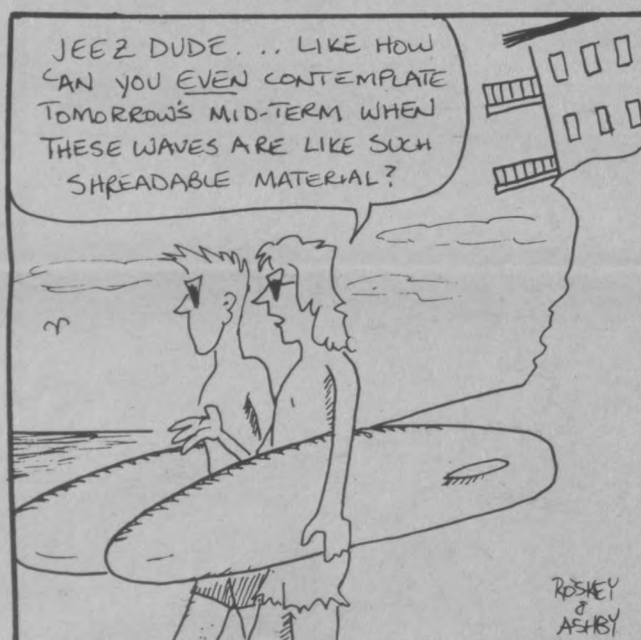 JEEZ DUDE... LIKE HOW
CAN YOU EVEN CONTEMPLATE
TOMORROW'S MID-TERM WHEN
THESE WAVES ARE LIKE SUCH
SHREADABLE MATERIAL?
ROSKEY
&
ASHBY